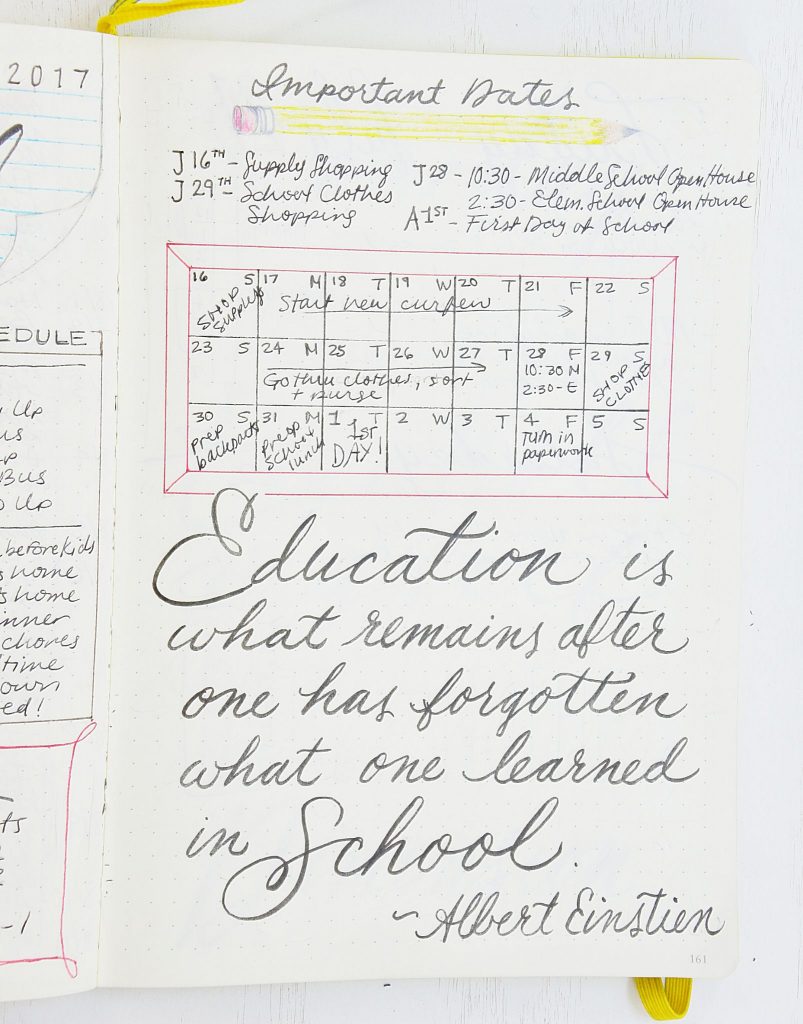 2017
EDULE
Up
us
p
Bus
Up
before kids
s home
s home
inner
chores
time
own
ed!
ts
-1
Important Dates
J 16TH - Supply Shopping
J 29TH - School Clothes
Shopping
J 28 - 10:30 - Middle School Open House
2:30 - Elem. School Open House
A 1ST - First Day of School
16 S 17 M 18 T 19 W 20 T 21 F 22 S
SHOP
Supplys
Start new curfew
23 S 24 M 25 T 26 W 27 T 28 F 29 S
Go thru clothes, sort
+ purge
10:30 M
2:30 - E
SHOP
CLOTHES
30 S 31 M 1 T 2 W 3 T 4 F 5 S
Prep
backpacks
Prep
School
lunch
1st
DAY!
Turn in
paperwork
Education is
what remains after
one has forgotten
what one learned
in School.
~Albert Einstien
161